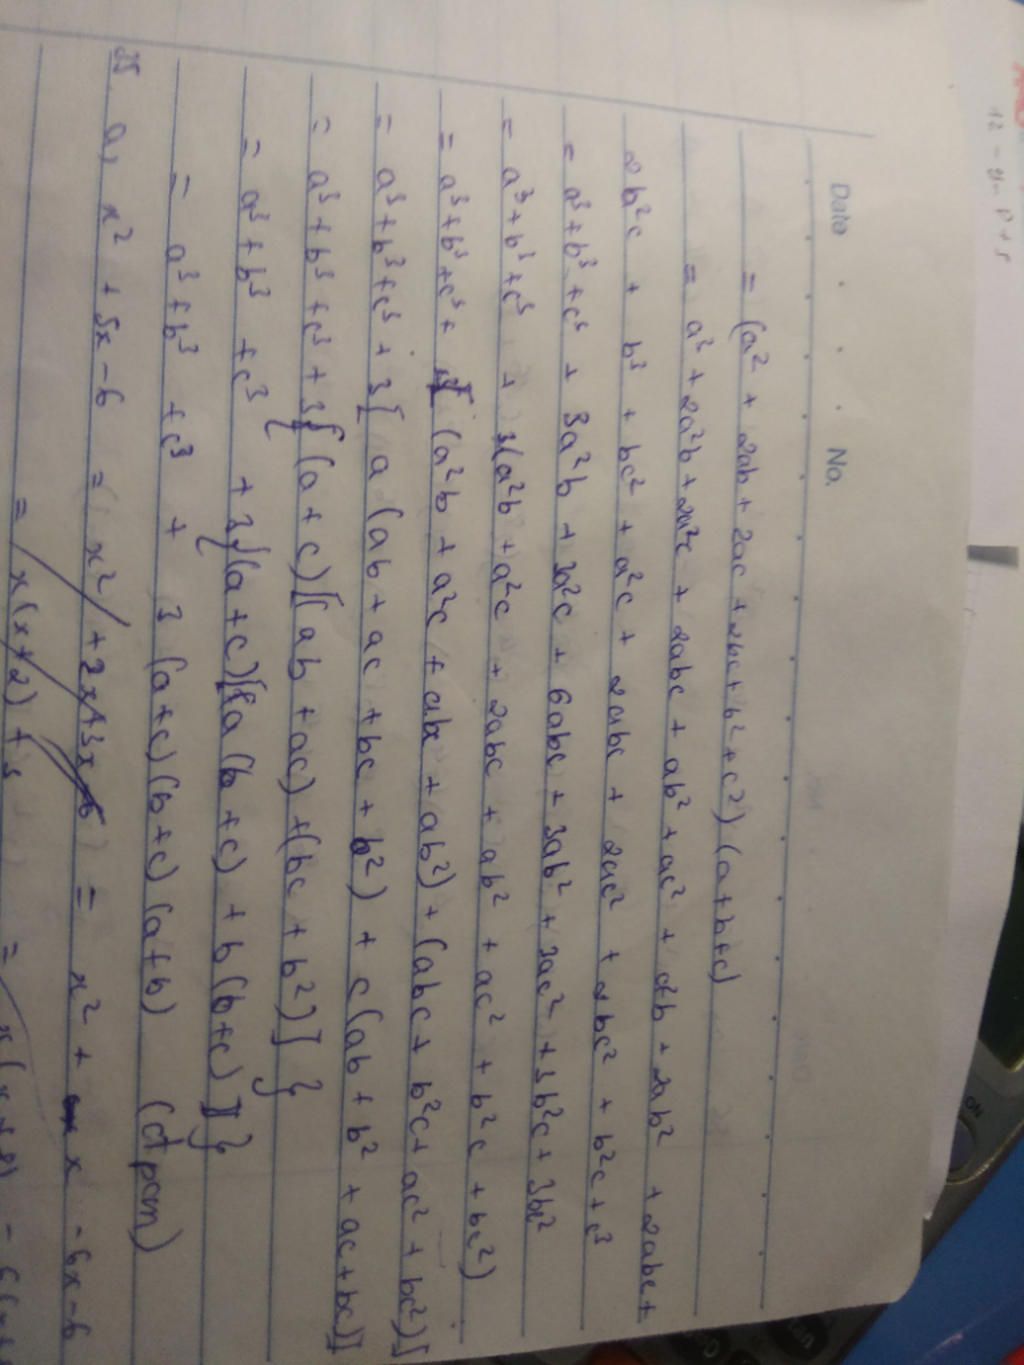 12 - y - p + 5
Date No.
= (a² + 2ab + 2ac + 2bc + b² + c²) (a+b+c)
= a³ + 2a²b + 2a²c + 2abc + ab² + ac² + a²b + 2ab² + 2abc +
2b²c + b³ + bc² + a²c + 2abc + 2ac² + 2bc² + b²c + c³
= a³ + b³ + c³ + 3a²b + 3a²c + 6abc + 3ab² + 3ac² + 3b²c + 3bc²
= a³ + b³ + c³ + 3(a²b + a²c + 2abc + ab² + ac² + b²c + bc²)
= a³ + b³ + c³ + 3[(a²b + a²c + abc + ab²) + (abc + b²c + ac² + bc²)]
= a³ + b³ + c³ + 3[a (ab + ac + bc + b²) + c(ab + b² + ac + bc)]
= a³ + b³ + c³ + 3{(a + c)[(ab + ac) + (bc + b²)]}
= a³ + b³ + c³ + 3{(a + c)[a (b + c) + b (b + c)]}
= a³ + b³ + c³ + 3 (a+c) (b+c) (a+b) (đpcm)
35. a, x² + 5x - 6 = x² + 2x + 3x - 6 = x² + x - 6x - 6
= x(x+2) + 3 = x(x